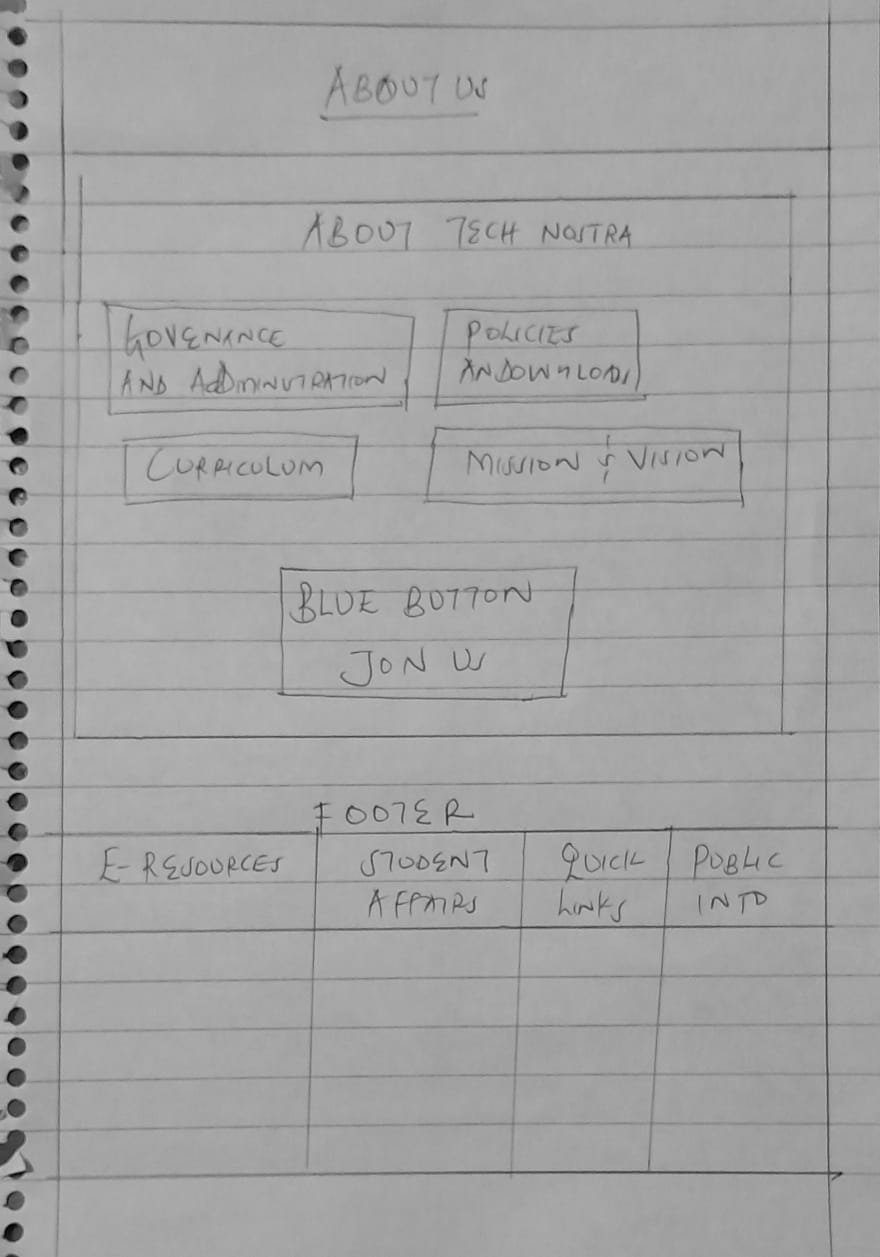 ABOUT US
ABOUT TECH NOSTRA
GOVENANCE
AND ADMINISTRATION
POLICIES
AN DOWNLOADS
CURRICULUM
MISSION & VISION
BLUE BUTTON
JOIN US
FOOTER
E-RESOURCES
STUDENT
AFFAIRS
QUICK
LINKS
PUBLIC
INTO